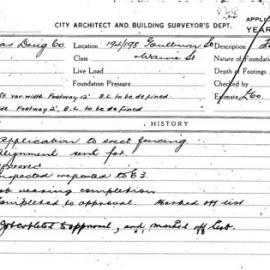 CITY ARCHITECT AND BUILDING SURVEYOR'S DEPT.
APPLIC
YEAR
as Drug Co. Location 194/198 Goulburn St Description
Class Warne St Nature of Foundation
Live Load Depth of Footings
Foundation Pressure Checked by
St var. width. Footway 12' B.L. to be defined Estimate £60.
Footway 2', B.L. to be defined
HISTORY
Application to erect fencing
alignment sent for
approved
Inspected reported to E3.
nearing completion
Completed to approval Marked off list
Job completed to approval, and, marked off list.